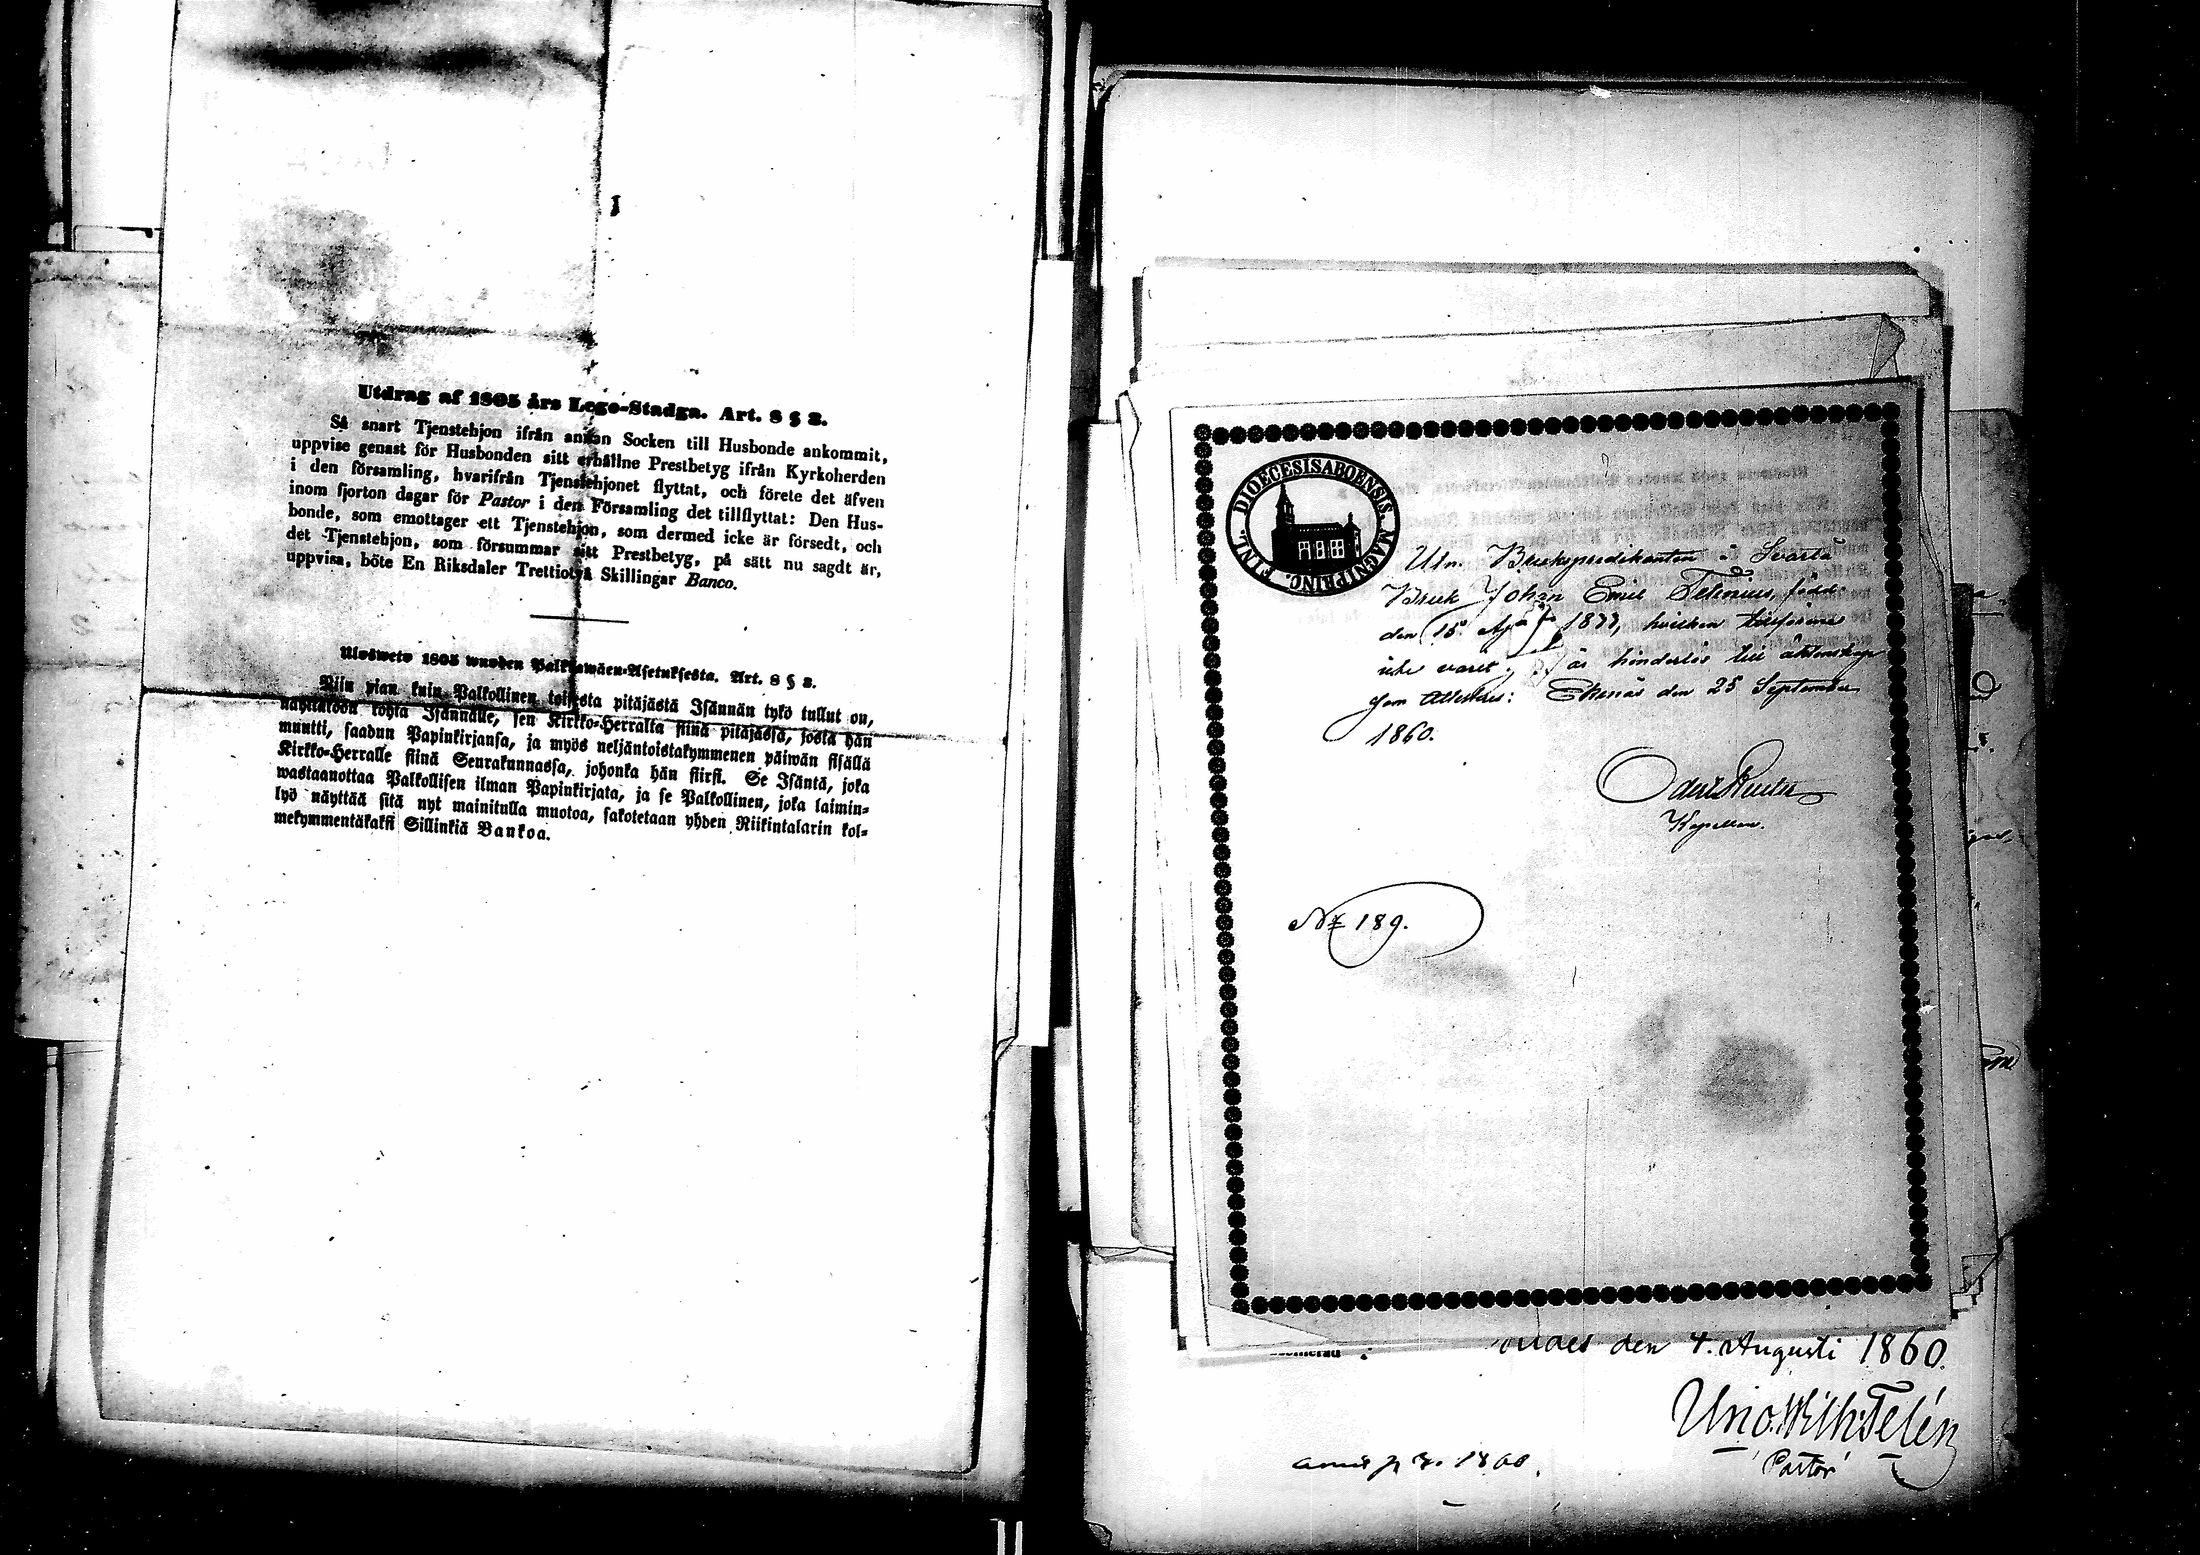 Utdrag af 1805 års Lego-Stadga. Art. 8 § 2.
Så snart Tjenstehjon ifrån annan Socken till Husbonde ankommit,
uppvise genast för Husbonden sitt erhållne Prestbetyg ifrån Kyrkoherden
i den församling, hvarifrån Tjenstehjonet flyttat, och förete det äfven
inom fjorton dagar för Pastor i den Församling det tillflyttat: Den Hus-
bonde, som emottager ett Tjenstehjon, som dermed icke är försedt, och
det Tjenstehjon, som försummar sitt Prestbetyg, på sätt nu sagdt är,
uppvisa, böte En Riksdaler Trettiotvå Skillingar Banco.
Ulosweto 1805 wuoden Palkkawäen-Asetuksesta. Art. 8 § 2.
Niin pian kuin Palkollinen toisesta pitäjästä Isännän tykö tullut on,
näyttäköön kohta Isännälle, sen Kirkko-Herralta siinä pitäjässä, josta hän
muutti, saadun Papinkirjansa, ja myös neljäntoistakymmenen päiwän sisällä
Kirkko-Herralle siinä Seurakunnassa, johonka hän siirsi. Se Isäntä, joka
wastaanottaa Palkollisen ilman Papinkirjata, ja se Palkollinen, joka laimin-
lyö näyttää sitä nyt mainitulla muotoa, sakotetaan yhden Riikintalarin kol-
mekymmentäkaksi Sillinkiä Bankoa.
DIOECESIS ABOENSIS. MAGNI PRINC. FINL.
Utn. Bruckspredikanten i Svartå
Bruk Johan Emil Telenius, född
den 15 1877, hvilken
icke varit; är hinderlös till äktenskap
som attesteras: Ekenäs den 25 September
1860.
Kapellan.
No 189.
den 4. Augusti 1860.
Uno Wilh. Telén
Pastor